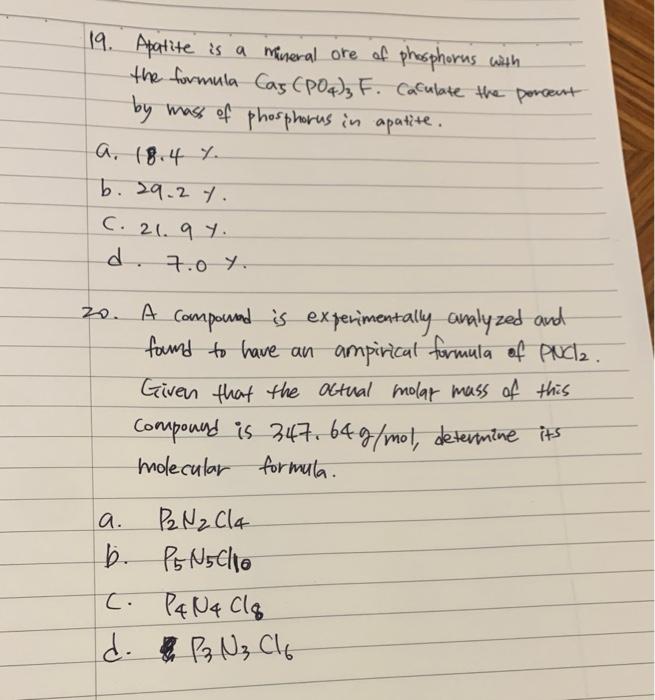 19. Apatite is a mineral ore of phosphorus with
the formula Ca5(PO4)3F. Caculate the percent
by mass of phosphorus in apatite.
a. 18.4 %.
b. 29.2 %.
C. 21.9 %.
d. 7.0 %.
20. A compound is experimentally analyzed and
found to have an ampirical formula of PNCl2.
Given that the actual molar mass of this
compound is 347.64g/mol, determine its
molecular formula.
a. P2N2Cl4
b. P5N5Cl10
C. P4N4Cl8
d. P3N3Cl6